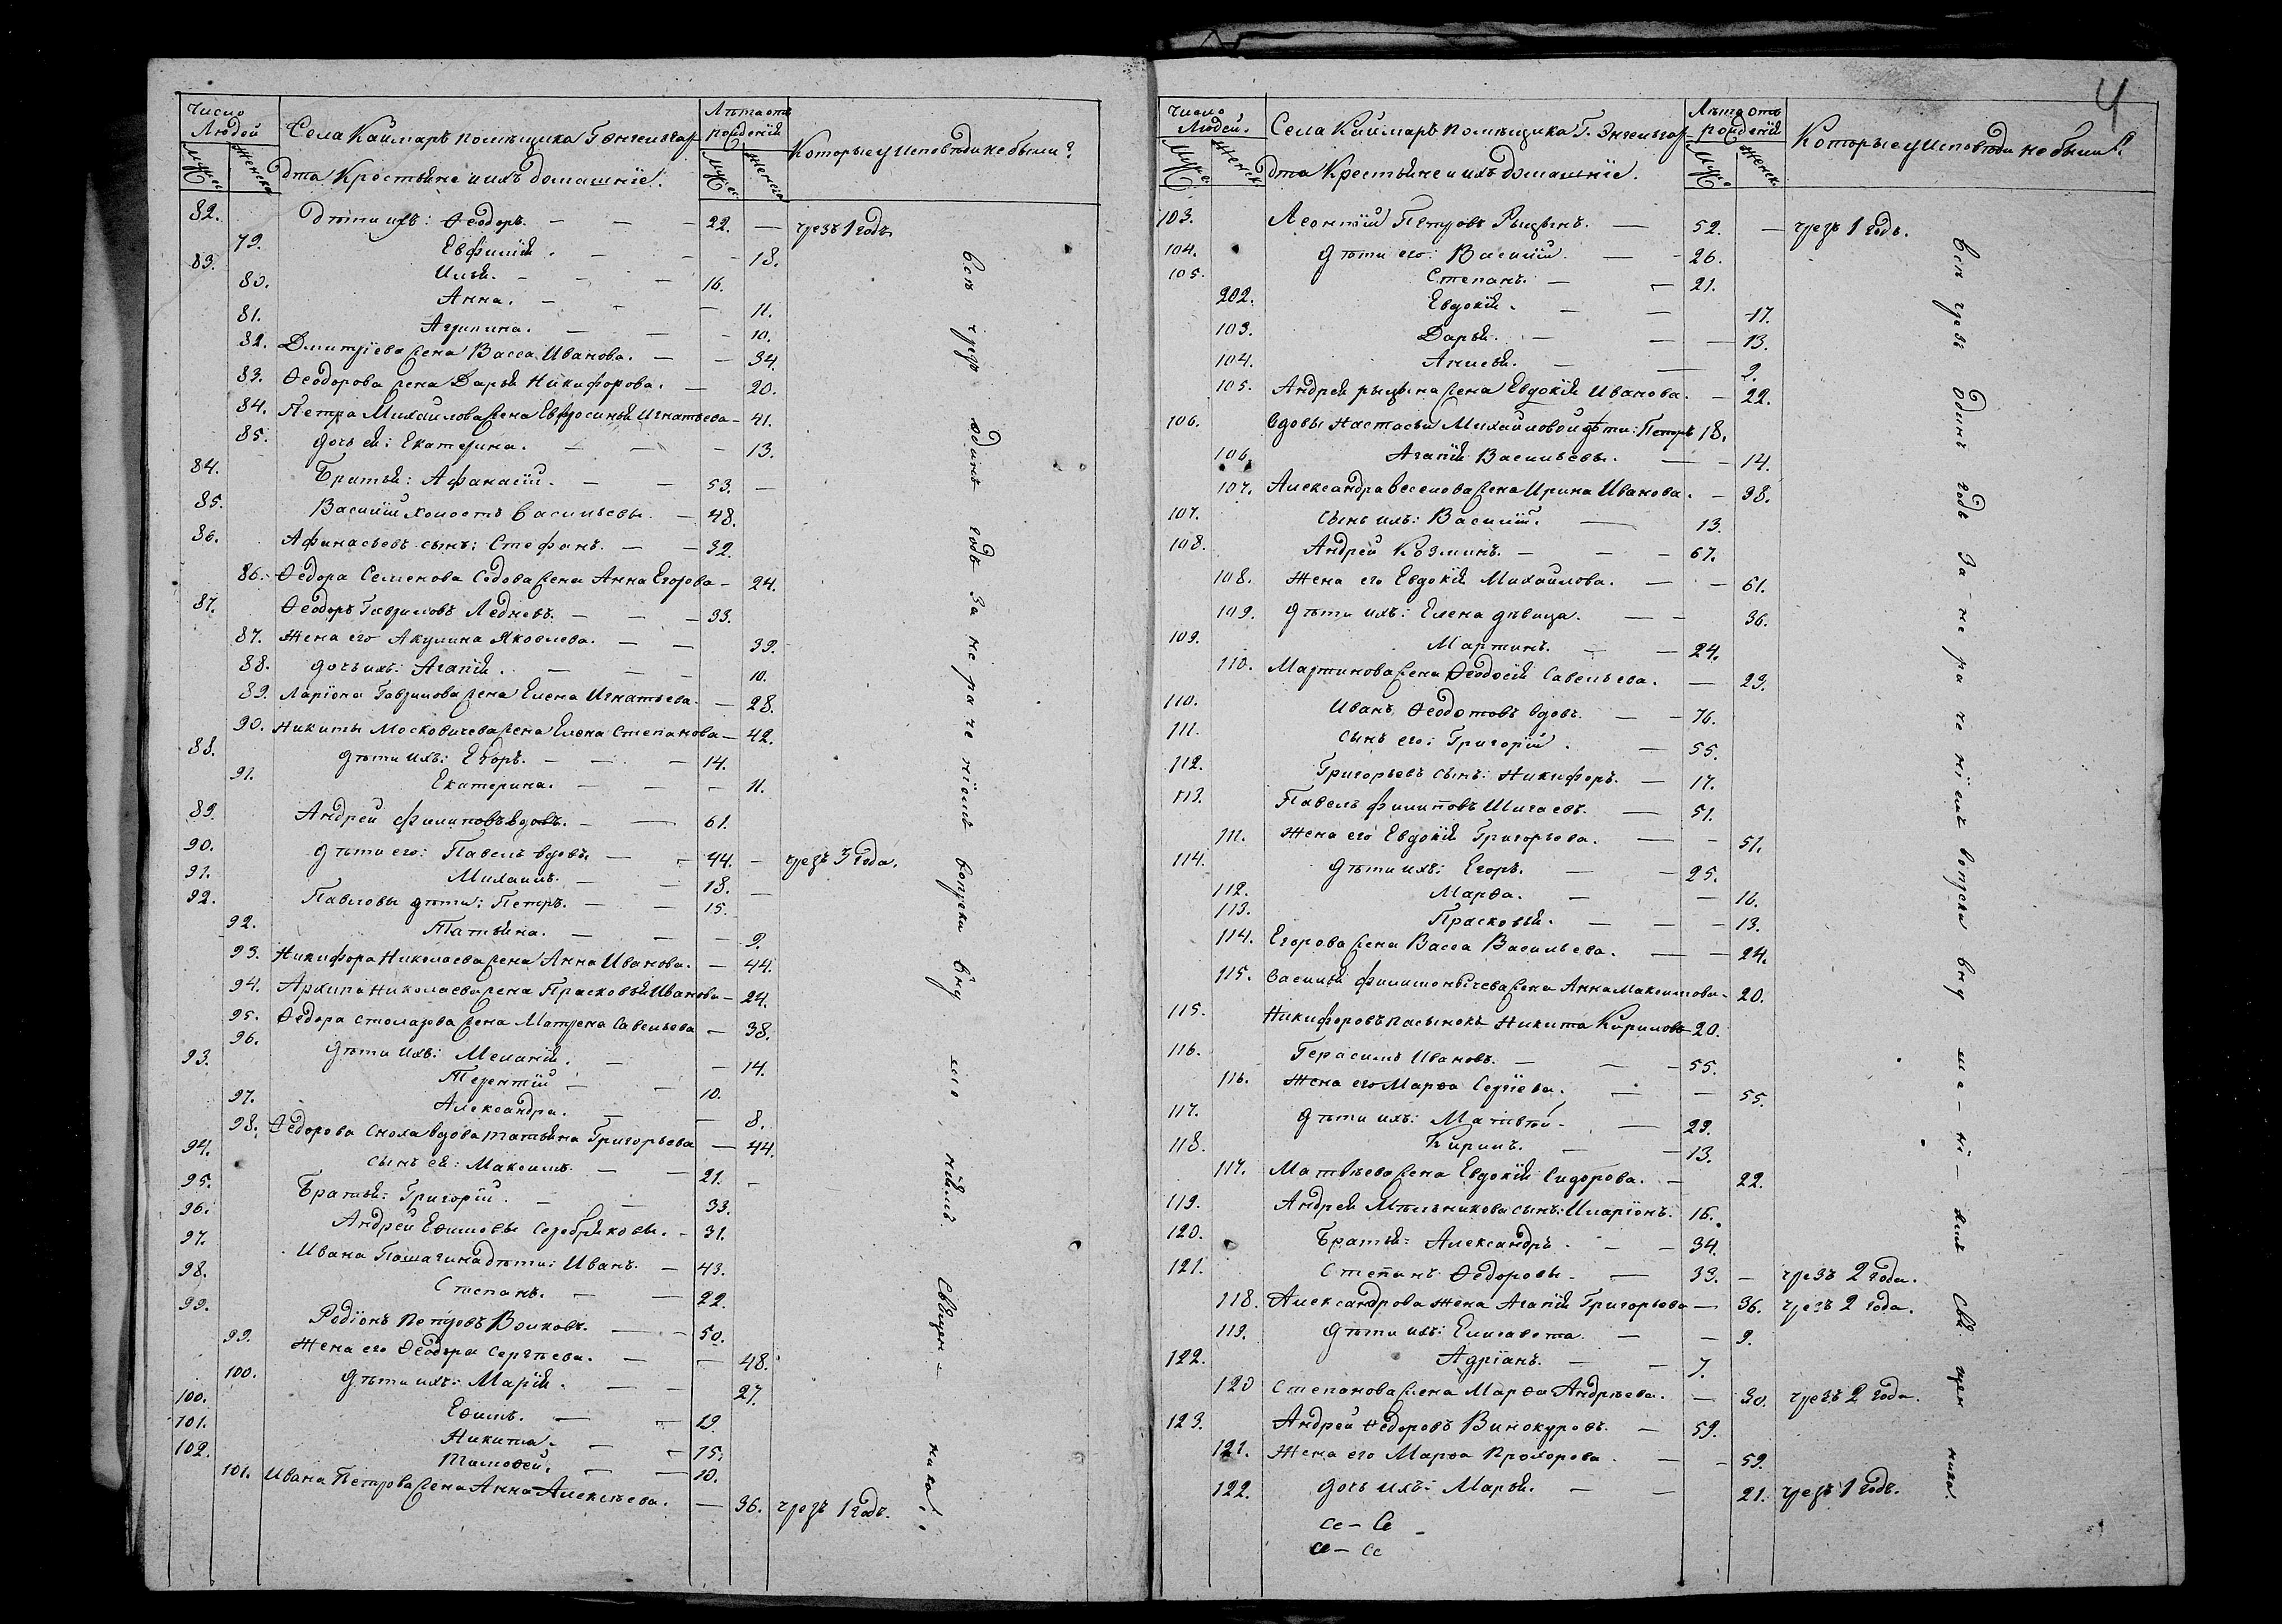 Число Людей
Села Каймаръ помѣщика Г. Энгельгар
дта Крестьяне и ихъ домашніе.
Лѣта отъ рожденія
Которые у исповѣди не были?
Муж. Женска
Муж. Женска
82. Дѣти ихъ: Ѳеодоръ. — — — 22. — чрезъ 1 годъ
79. Евфимія. — — 18.
83. Илья. — — — 16.
80. Анна. — — — 11.
81. Агрипина. — — — 10.
82. Дмитріева жена Васса Иванова. — — 34.
83. Ѳеодорова жена Дарья Никифорова. — 20.
84. Петра Михайлова жена Евфросинья Игнатьева — 41.
85. дочь ея: Екатерина. — — — 13.
84. Братья: Афанасій. — — 53. —
85. Василій холостъ Васильевы. — 48.
86. Афанасьевъ сынъ: Стефанъ. — — 32.
86. Ѳедора Семенова Седова жена Анна Егорова — 24.
87. Ѳеодоръ Гавриловъ Ледневъ. — — — 33.
87. Жена его Акулина Яковлева. — — 39.
88. дочь ихъ: Агапія. — — — 10.
89. Ларіона Гаврилова жена Елена Игнатьева. — 28.
90. Никиты Московичева жена Елена Степанова — 42.
88. Дѣти ихъ: Егоръ. — — — 14.
91. Екатерина. — — — 11.
89. Андрей Филиповъ вдовъ. — — 61.
90. Дѣти его: Павелъ вдовъ — — 44. — чрезъ 3 года.
91. Михаилъ. — — 18. —
92. Павловы дѣти: Петръ. — — 15.
92. Татьяна. — — — 9.
93. Никифора Николаева жена Анна Иванова. — 44.
94. Архипа Николаева жена Прасковья Иванова — 24.
95. Ѳедора Столарова жена Матрена Савельева — 38.
96. Дѣти ихъ: Меланія. — — 14.
93. Терентій — — 10.
97. Александра. — — 8.
98. Ѳедорова сноха вдова Татьяна Григорьева — 44.
94. сынъ ея: Максимъ. — — 21. —
95. Братья: Григорій. — — 33.
96. Андрей Еѳимовы Серебряковы. — 31.
97. Ивана Пашагина дѣти: Иванъ. — 43.
98. Степанъ. — — 22.
99. Родіонъ Петровъ Волковъ. — — 50.
99. Жена его Ѳеодора Сергѣева. — — 48.
100. Дѣти ихъ: Марія. — — 27.
100. Еѳимъ. — — 19.
101. Никита. — — 15.
102. Тимоѳей. — — 10.
101. Ивана Петрова жена Анна Алексѣева. — 36. чрезъ 1 годъ.
Всѣ чрезъ одинъ годъ за нераченіемъ
4
Число Людей.
Села Каймаръ помѣщика Г. Энгельгар
дта Крестьяне и ихъ домашніе.
Лѣта отъ рожденія
Которые у исповѣди не были?
Муж. Женск.
Муж. Женск.
103. Леонтій Петровъ Рыцынъ. — 52. — чрезъ 1 годъ.
104. Дѣти его: Василій. — — 26.
105. Степанъ. — — 21.
202. Евдокія. — — 17.
103. Дарья. — — — 13.
104. Анисья. — — 9.
105. Андрея Рыцына жена Евдокія Иванова. — 22.
106. Вдовы Настасьи Михайловой дѣти: Петръ 18.
106. Агапія Васильевы. — — 14.
107. Александра Веселова жена Ирина Иванова. — 38.
107. Сынъ ихъ: Василій. — 13.
108. Андрей Козминъ. — — — 67.
108. Жена его Евдокія Михайлова. — — 61.
109. Дѣти ихъ: Елена дѣвица. — — 36.
109. Мартинъ. — — 24.
110. Мартинова жена Ѳеодосія Савельева. — 23.
110. Иванъ Ѳеодотовъ вдовъ. — — 76.
111. Сынъ его: Григорій. — 55.
112. Григорьевъ сынъ: Никифоръ. — 17.
113. Павелъ Филиповъ Шигаевъ. — 51.
111. Жена его Евдокія Григорьева. — — 51.
114. Дѣти ихъ: Егоръ. — — 25.
112. Марѳа. — — 16.
113. Прасковья. — — — 13.
114. Егорова жена Васса Васильева. — — 24.
115. Василья Филимонычева жена Анна Максимова — 20.
115. Никифоровъ пасынокъ Никита Кириловъ — 20.
116. Герасимъ Ивановъ. — — — 55.
116. Жена его Марѳа Сергіева. — — 55.
117. Дѣти ихъ: Матвѣй. — 23.
118. Кирилъ. — — 13.
117. Матвѣева жена Евдокія Сидорова. — 22.
119. Андрея Мельникова сынъ: Иларіонъ. 16.
120. Братья: Александръ. — — 34.
121. Степанъ Ѳедоровы. — 33. — чрезъ 2 года.
118. Александрова жена Агапія Григорьева — 36. чрезъ 2 года.
119. Дѣти ихъ: Елисавета. — — 9.
122. Адріанъ. — — 7.
120 Степанова жена Марѳа Андреева. — 30. чрезъ 2 года.
123. Андрей Ѳедоровъ Винокуровъ. — 59.
121. Жена его Марѳа Прохорова. — — 59.
122. Дочь ихъ: Марья. — — 21. чрезъ 1 годъ.
Всѣ чрезъ одинъ годъ за нераченіемъ